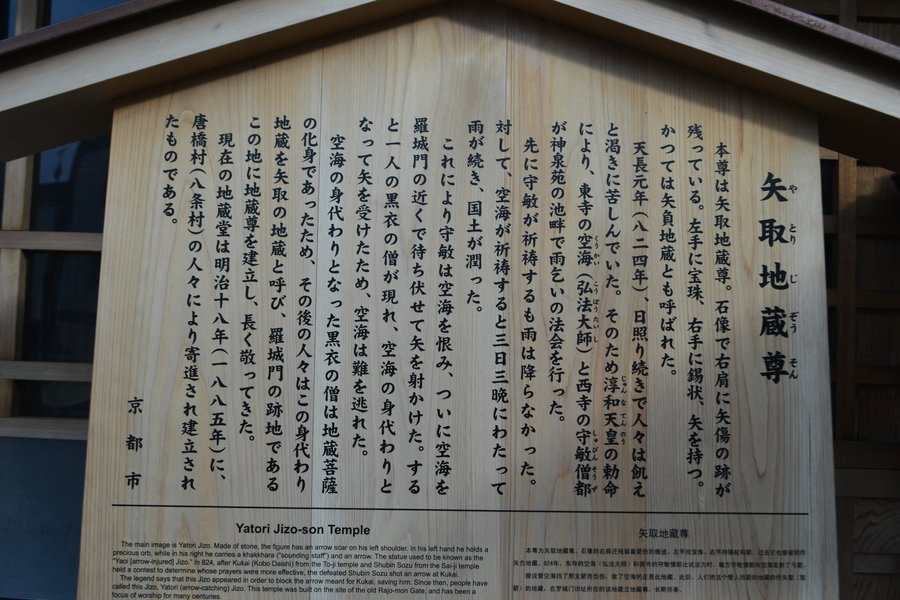 矢取地蔵尊
やとりじぞうそん
本尊は矢取地蔵尊。石像で右肩に矢傷の跡が
残っている。左手に宝珠、右手に錫状、矢を持つ。
かつては矢負地蔵とも呼ばれた。
天長元年（八二四年）、日照り続きで人々は飢え
と渇きに苦しんでいた。そのため淳和天皇の勅命
により、東寺の空海（弘法大師）と西寺の守敏僧都
が神泉苑の池畔で雨乞いの法会を行った。
先に守敏が祈祷するも雨は降らなかった。
対して、空海が祈祷すると三日三晩にわたって
雨が続き、国土が潤った。
これにより守敏は空海を恨み、ついに空海を
羅城門の近くで待ち伏せて矢を射かけた。する
と一人の黒衣の僧が現れ、空海の身代わりと
なって矢を受けたため、空海は難を逃れた。
空海の身代わりとなった黒衣の僧は地蔵菩薩
の化身であったため、その後の人々はこの身代わり
地蔵を矢取の地蔵と呼び、羅城門の跡地である
この地に地蔵尊を建立し、長く敬ってきた。
現在の地蔵堂は明治十八年（一八八五年）に、
唐橋村（八条村）の人々により寄進され建立され
たものである。
京都市
Yatori Jizo-son Temple
The main image is Yatori Jizo. Made of stone, the figure has an arrow scar on his left shoulder. In his left hand he holds a
precious orb, while in his right he carries a khakkhara ("sounding staff") and an arrow. The statue used to be known as the
"Yaoi [arrow-injured] Jizo." In 824, after Kukai (Kobo Daishi) from the To-ji temple and Shubin Sozu from the Sai-ji temple
held a contest to determine whose prayers were more effective, the defeated Shubin Sozu shot an arrow at Kukai.
The legend says that this Jizo appeared in order to block the arrow meant for Kukai, saving him. Since then, people have
called this Jizo, Yatori (arrow-catching) Jizo. This temple was built on the site of the old Rajo-mon Gate, and has been a
focus of worship for many centuries.
矢取地藏尊